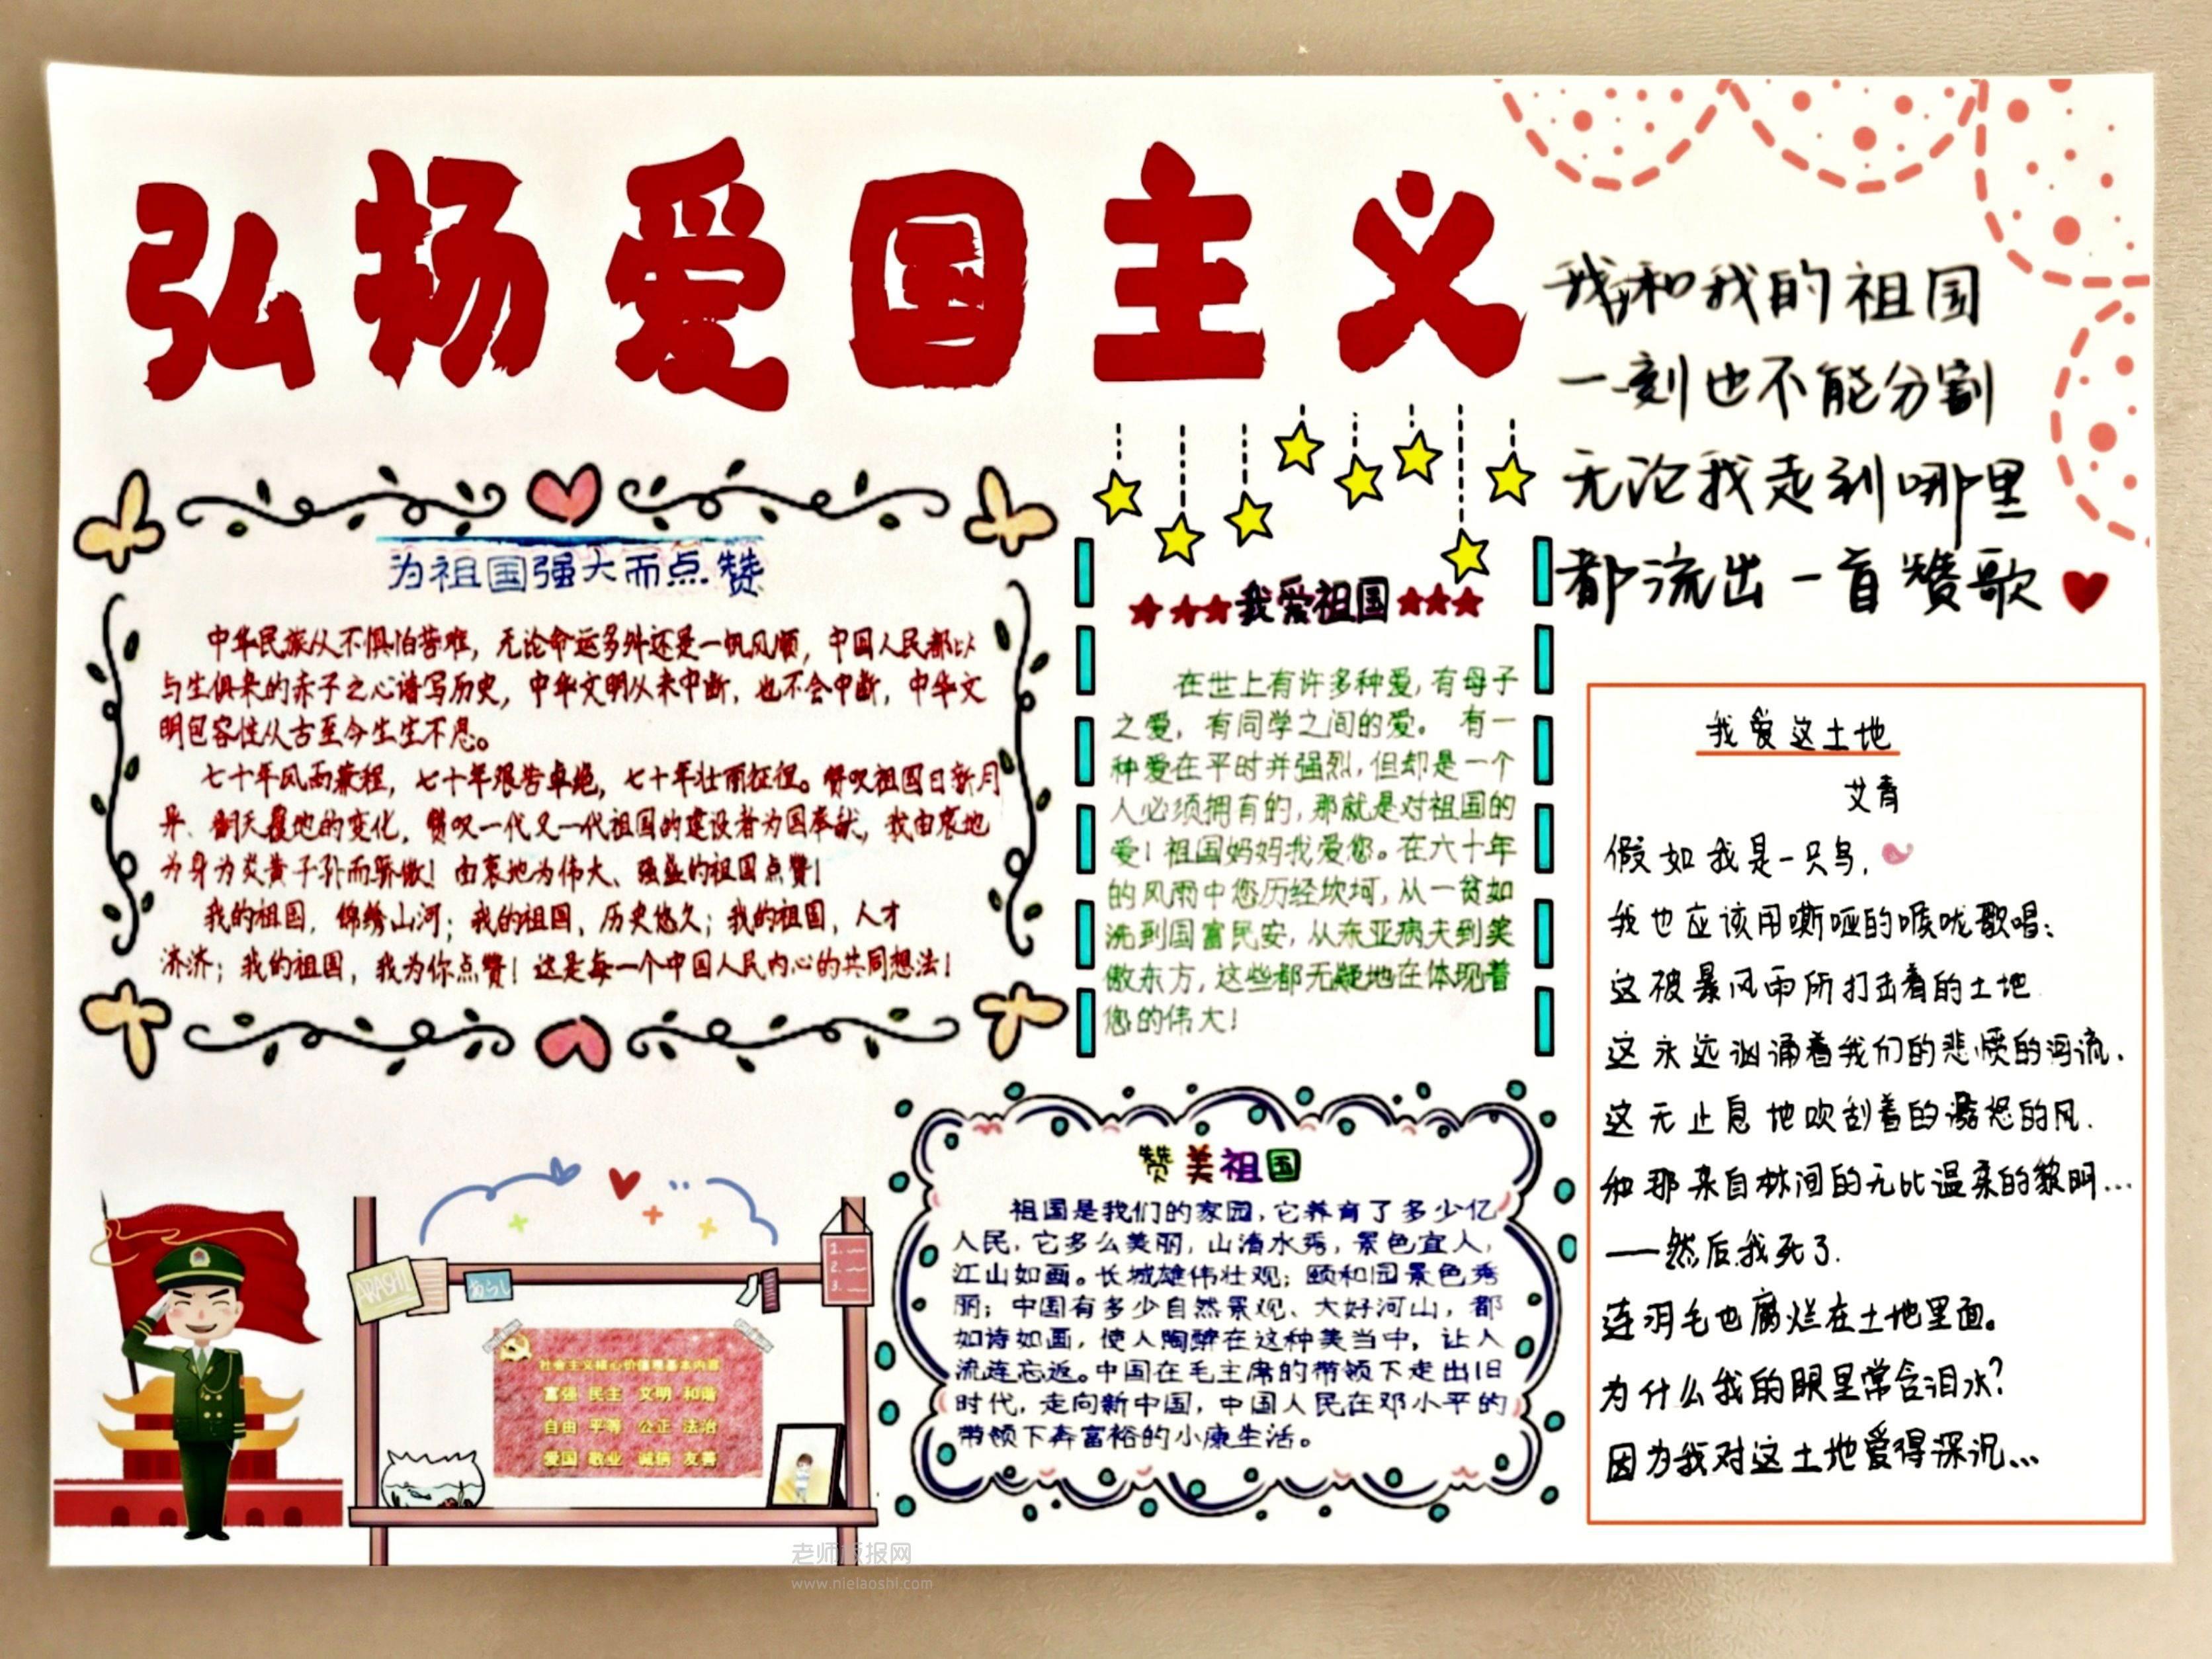 弘扬爱国主义
我和我的祖国
一刻也不能分割
无论我走到哪里
都流出一首赞歌
为祖国强大而点赞
中华民族从不惧怕苦难，无论命运多舛还是一帆风顺，中国人民都以
与生俱来的赤子之心谱写历史，中华文明从未中断，也不会中断，中华文
明包容性从古至今生生不息。
七十年风雨兼程，七十年艰苦卓绝，七十年壮丽征程。赞叹祖国日新月
异、翻天覆地的变化，赞叹一代又一代祖国的建设者为国奉献，我由衷地
为身为炎黄子孙而骄傲！由衷地为伟大、强盛的祖国点赞！
我的祖国，锦绣山河；我的祖国，历史悠久；我的祖国，人才
济济；我的祖国，我为你点赞！这是每一个中国人民内心的共同想法！
我爱祖国
在世上有许多种爱，有母子
之爱，有同学之间的爱。有一
种爱在平时并强烈，但却是一个
人必须拥有的，那就是对祖国的
爱！祖国妈妈我爱您。在六十年
的风雨中您历经坎坷，从一贫如
洗到国富民安，从东亚病夫到笑
傲东方，这些都无疑地在体现着
您的伟大！
我爱这土地
艾青
假如我是一只鸟，
我也应该用嘶哑的喉咙歌唱：
这被暴风雨所打击着的土地
这永远汹涌着我们的悲愤的河流，
这无止息地吹刮着的激怒的风，
和那来自林间的无比温柔的黎明…
——然后我死了，
连羽毛也腐烂在土地里面。
为什么我的眼里常含泪水？
因为我对这土地爱得深沉…
赞美祖国
祖国是我们的家园，它养育了多少亿
人民，它多么美丽，山清水秀，景色宜人，
江山如画。长城雄伟壮观；颐和园景色秀
丽；中国有多少自然景观、大好河山，都
如诗如画，使人陶醉在这种美当中，让人
流连忘返。中国在毛主席的带领下走出旧
时代，走向新中国，中国人民在邓小平的
带领下奔富裕的小康生活。
ARASHI
あらし
1.
2.
3.
社会主义核心价值观基本内容
富强 民主 文明 和谐
自由 平等 公正 法治
爱国 敬业 诚信 友善
老师板报网
www.nielaoshi.com